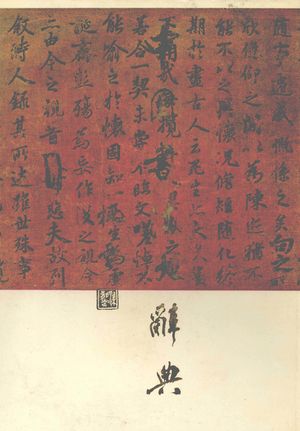 隨事遷感慨係之矣向之
欣俛仰之間以為陳迹猶不
能不以之興懷況脩短隨化終
期於盡古人云死生亦大矣豈
不痛哉每攬
之由
若合一契未嘗不臨文嗟悼不
能喻之於懷固知一死生為虛
誕齊彭殤為妄作後之視今
由今之視昔悲夫故列
敘時人錄其所述雖世殊事
書
辭典